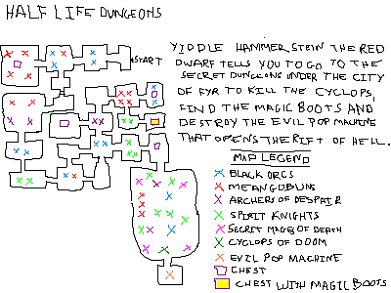 HALF LIFE DUNGEONS
START
YIDDLE HAMMERSTEIN THE RED
DWARF TELLS YOU TO GO TO THE
SECRET DUNGEONS UNDER THE CITY
OF FYR TO KILL THE CYCLOPS,
FIND THE MAGIC BOOTS AND
DESTROY THE EVIL POP MACHINE
THAT OPENS THE RIFT OF HELL.
MAP LEGEND
BLACK ORCS
MEAN GOBLINS
ARCHERS OF DESPAIR
SPIRIT KNIGHTS
SECRET MAGES OF DEATH
CYCLOPS OF DOOM
EVIL POP MACHINE
CHEST
CHEST WITH MAGIC BOOTS